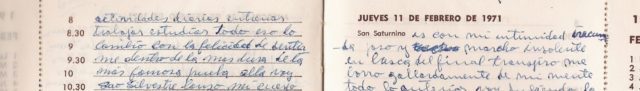 8 actividades diarias entrenar
8.30 trabajar estudiar todo eso lo
9 cambio con la felicidad de sentir
9.30 me dentro de la mas dura de la
10 más famosa punta ella voy
10.30 San Silvestre lanzo mi cuerpo
JUEVES 11 DE FEBRERO DE 1971
San Saturnino es con mi intimidad
uso y marcho insolente
en busca del final transpiro me
corro gallardamente de mi mente
todo lo anterior voy
FE
1
2
3
4